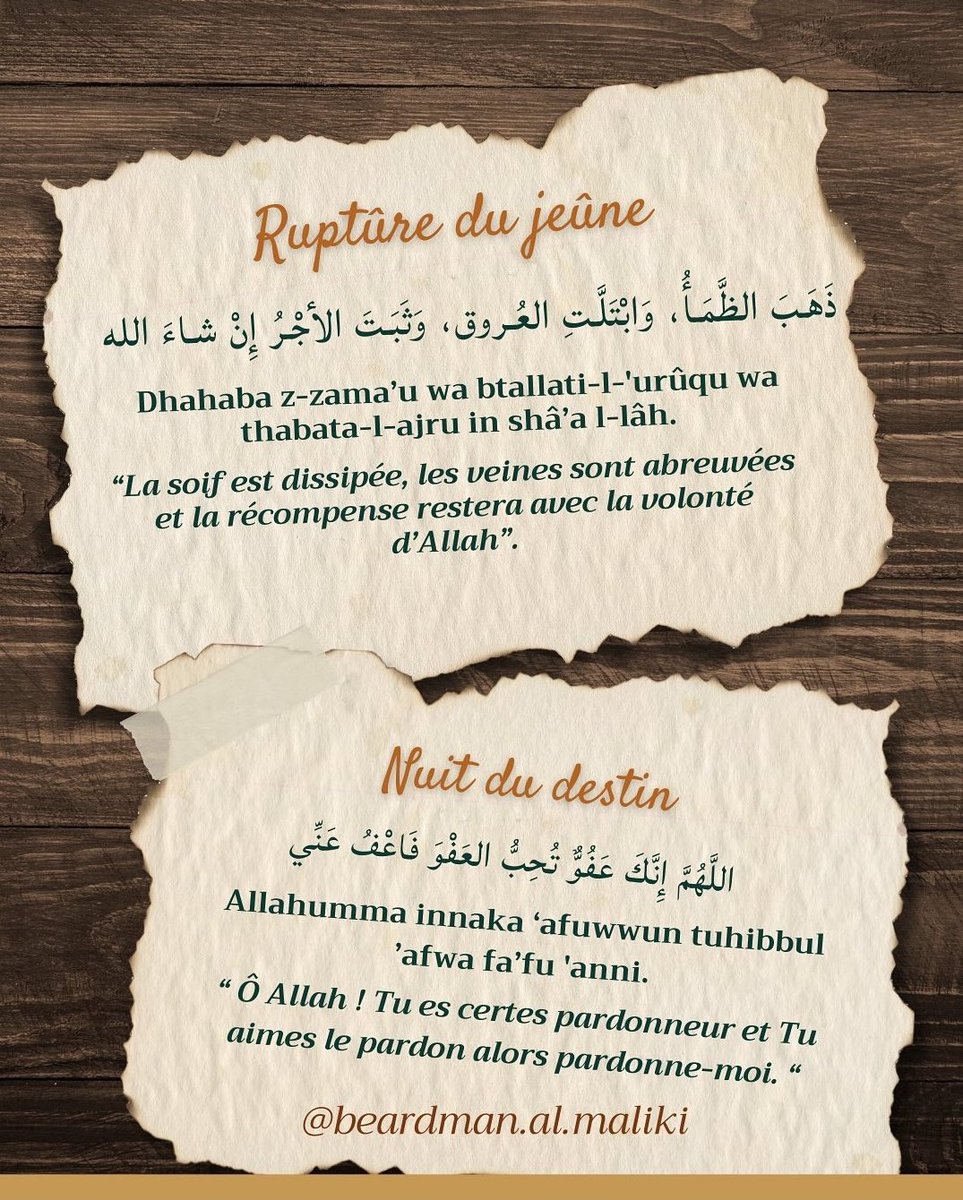 Ruptûre du jeûne
ذَهَبَ الظَّمَأُ، وَابْتَلَّتِ العُروق، وَثَبَتَ الأجْرُ إِنْ شاءَ الله
Dhahaba z-zama’u wa btallati-l-'urûqu wa
thabata-l-ajru in shâ’a l-lâh.
“La soif est dissipée, les veines sont abreuvées
et la récompense restera avec la volonté
d’Allah”.
Nuit du destin
اللَّهُمَّ إِنَّكَ عَفُوٌّ تُحِبُّ العَفْوَ فَاعْفُ عَنِّي
Allahumma innaka ‘afuwwun tuhibbul
’afwa fa’fu 'anni.
“ Ô Allah ! Tu es certes pardonneur et Tu
aimes le pardon alors pardonne-moi. “
@beardman.al.maliki